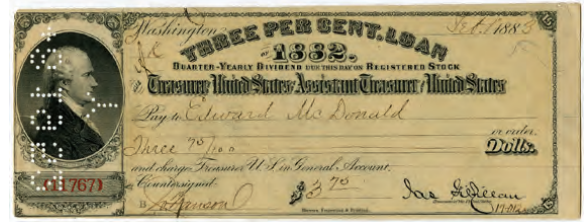 Washington Feb. 1 1883
THREE PER CENT. LOAN
OF
1882.
QUARTER-YEARLY DIVIDEND DUE THIS DAY ON REGISTERED STOCK
Treasurer United States Assistant Treasurer United States
Pay to Edward McDonald
or order.
Three 75/100 Dolls.
and charge Treasurer U.S. in General Account.
Countersigned
(11767)
B
$3 75
Jas Gilfillan